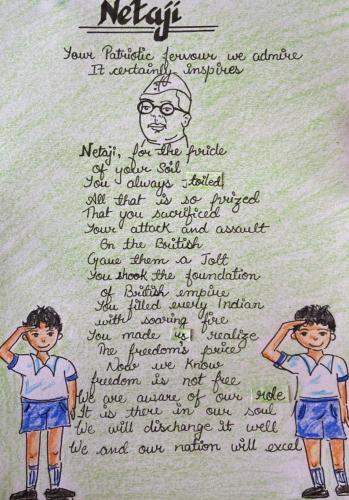 Netaji
Your Patriotic fervour we admire
It certainly inspires
Netaji, for the pride
of your Soil
You always toiled
All that is so prized
That you sacrificed
Your attack and assault
On the British
Gave them a Jolt
You shook the foundation
of British empire
You filled every Indian
with soaring fire
You made us realize
The freedom's price
Now we Know
freedom is not free
We are aware of our role
It is there in our soul
We will discharge it well
We and our nation will excel